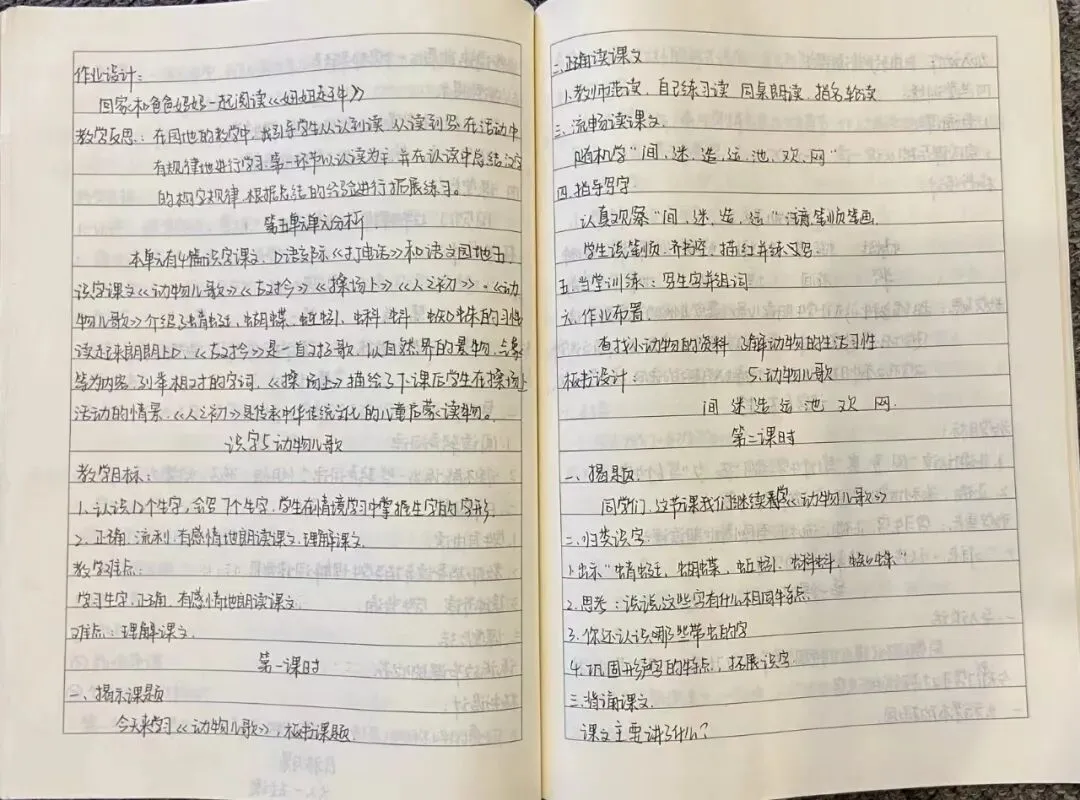 作业设计：
回家和爸爸妈妈一起阅读《妞妞赶牛》
教学反思：在园地的教学中，我引导学生从认到读，从读到写，在活动中
有规律地进行学习。第一环节以认读为主，并在认读中总结汉字
的构字规律，根据总结的经验进行拓展练习。
第五单元单元分析
本单元有4篇识字课文、口语交际《打电话》和语文园地五
识字课文《动物儿歌》《古对今》《操场上》《人之初》。《动
物儿歌》介绍了蜻蜓、蝴蝶、蚯蚓、蝌蚪、蜘蛛的习性
读起来朗朗上口，《古对今》是一首对子歌，以自然界的景物、气象
等为内容，列举相对的字词，《操场上》描绘了下课后学生在操场上
活动的情景，《人之初》是传承中华传统文化的儿童启蒙读物。
识字5 动物儿歌
教学目标：
1、认识12个生字，会写7个生字，学生在情境学习中掌握生字的字形
2、正确、流利、有感情地朗读课文，理解课文。
教学难点：
学习生字，正确、有感情地朗读课文
难点：理解课文。
第一课时
一、揭示课题
今天来学习《动物儿歌》，板书课题。
二、正确读课文
1、教师范读，自己练习读，同桌朗读，指名轮读
三、流畅读课文。
随机学“间、迷、造、运、池、欢、网”
四、指导写字
认真观察“间、迷、造、运”注意笔顺笔画。
学生说笔顺，齐书空，描红并练习写
五、当堂训练：写生字并组词
六、作业布置。
查找小动物的资料，了解动物的生活习性
板书设计： 5、动物儿歌
间 迷 造 运 池 欢 网
第二课时
一、揭题：
同学们，这节课我们继续学《动物儿歌》
二、归类识字
1、出示“蜻蜓、蝴蝶、蚯蚓、蝌蚪、蜘蛛”
2、思考：说说这些字有什么相同特点
3、你还认识哪些带虫的字
4、巩固形声字的特点，拓展识字
三、背诵课文
课文主要讲了什么？